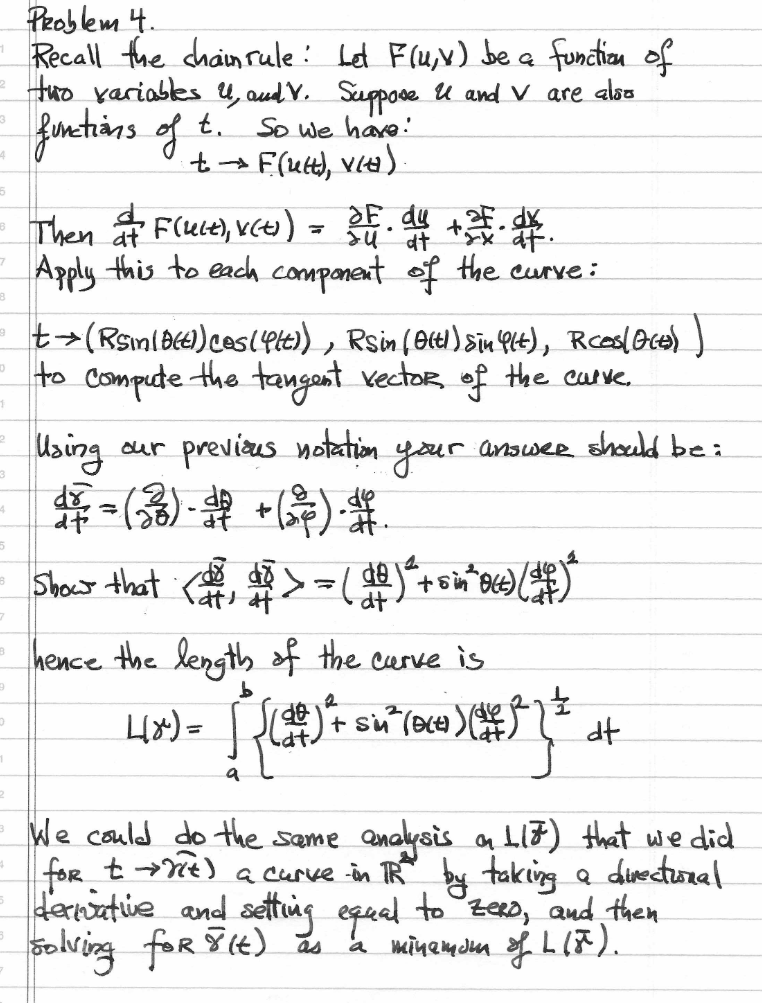 Problem 4.
Recall the chain rule: Let F(u,v) be a function of
two variables u, and v. Suppose u and v are also
functions of t. So we have:
t → F(u(t), v(t))
Then d/dt F(u(t), v(t)) = ∂F/∂u · du/dt + ∂F/∂v · dv/dt.
Apply this to each component of the curve:
t → (R sin(θ(t)) cos(φ(t)), R sin(θ(t)) sin φ(t), R cos(θ(t)))
to compute the tangent vector of the curve.
Using our previous notation your answer should be:
dγ̄/dt = (∂/∂θ) · dθ/dt + (∂/∂φ) · dφ/dt.
Show that <dγ̄/dt, dγ̄/dt> = (dθ/dt)² + sin²θ(t)(dφ/dt)²
hence the length of the curve is
L(γ) = ∫_a^b {(dθ/dt)² + sin²(θ(t))(dφ/dt)²}^{1/2} dt
We could do the same analysis on L(γ̄) that we did
for t → γ̄(t) a curve in ℝ² by taking a directional
derivative and setting equal to zero, and then
solving for γ̄(t) as a minamum of L(γ̄).